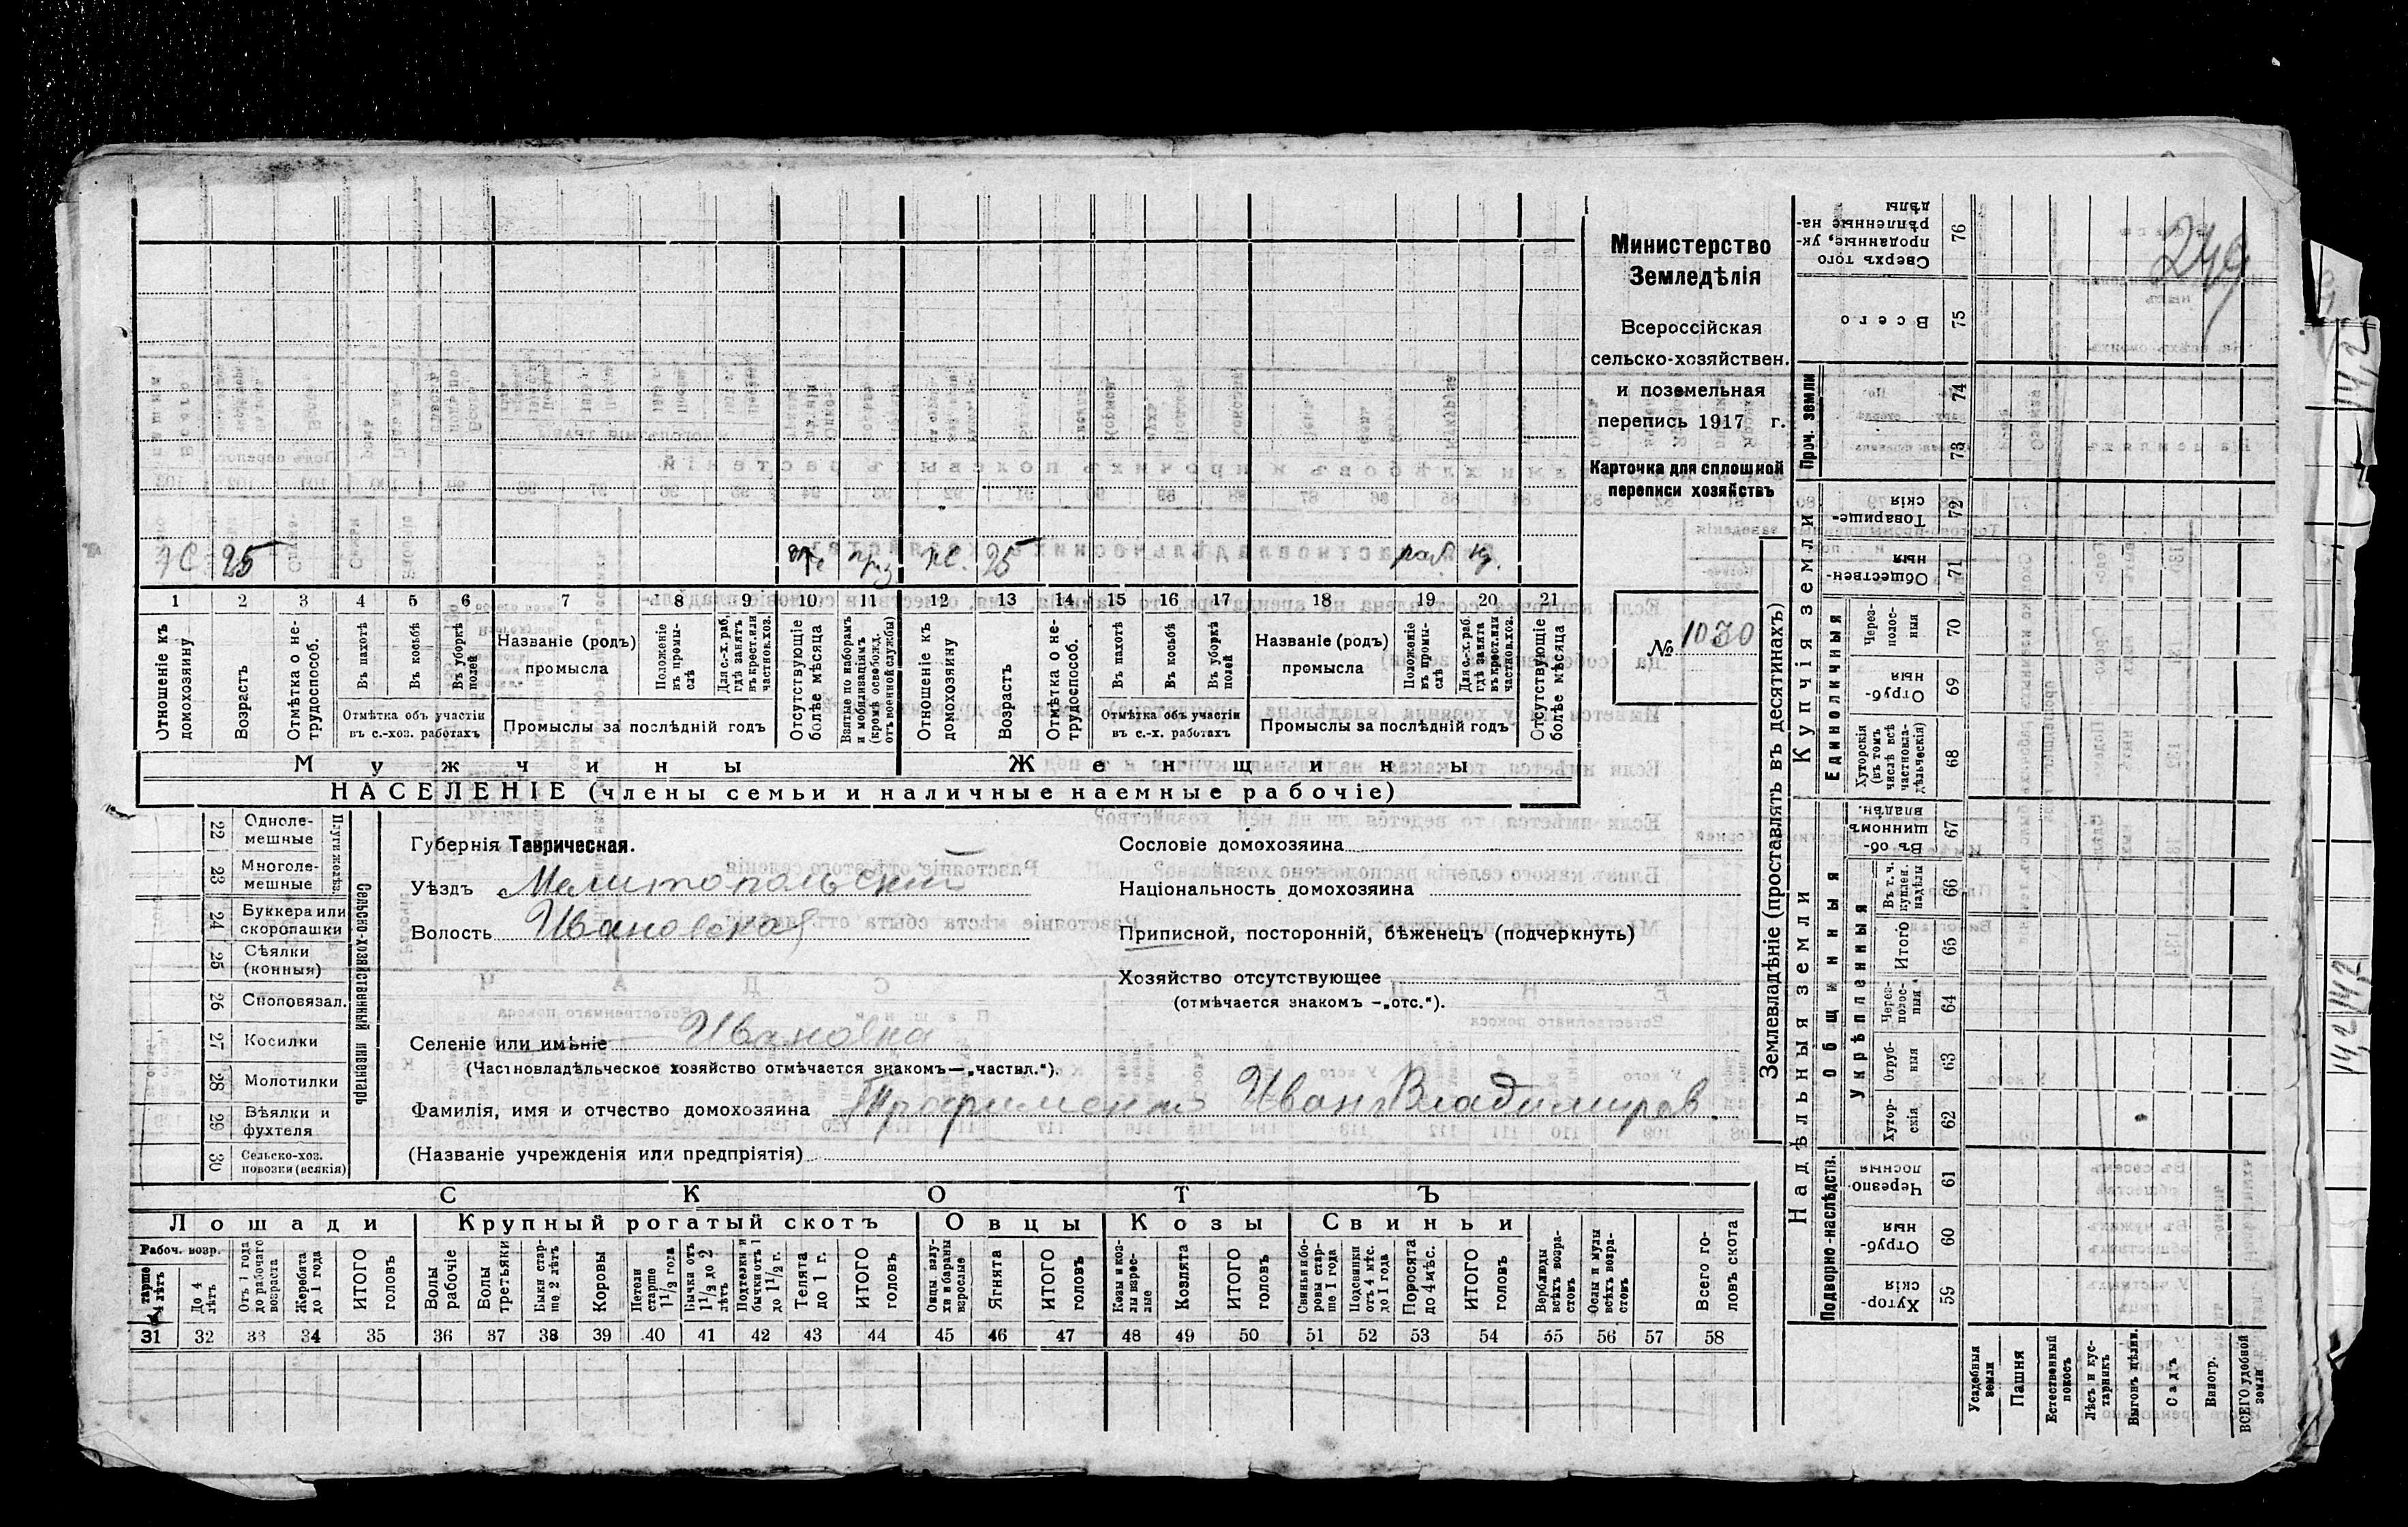 249
Министерство
Земледѣлія
Всероссійская
сельско-хозяйствен.
и поземельная
перепись 1917 г.
Карточка для сплошной
переписи хозяйствъ
№ 1030
25 25 раб.
1 2 3 4 5 6 7 8 9 10 11 12 13 14 15 16 17 18 19 20 21
Отношеніе къ домохозяину
Возрастъ
Отмѣтка о не-трудоспособ.
Въ пахотѣ
Въ косьбѣ
Въ уборкѣ полей
Отмѣтка объ участіи
въ с.-хоз. работахъ
Названіе (родъ)
промысла
Положеніе въ промы-слѣ
Для с.-х. раб. гдѣ занятъ въ крест. или частнов.хоз.
Промыслы за послѣдній годъ
Отсутствующіе болѣе мѣсяца
Взятые по наборамъ и мобилизаціямъ (кромѣ освобожд. отъ военной службы)
Отношеніе къ домохозяину
Возрастъ
Отмѣтка о не-трудоспособ.
Въ пахотѣ
Въ косьбѣ
Въ уборкѣ полей
Отмѣтка объ участіи
въ с.-х. работахъ
Названіе (родъ)
промысла
Положеніе въ промы-слѣ
Для с.-х. раб. гдѣ занята въ крест. или частнов.хоз.
Промыслы за послѣдній годъ
Отсутствующіе болѣе мѣсяца
Мужчины Женщины
НАСЕЛЕНІЕ (члены семьи и наличные наемные рабочіе)
22 Одноле-мешные
23 Многоле-мешные
Плуги желѣз.
24 Буккера или скоропашки
25 Сѣялки (конныя)
26 Сноповязал.
27 Косилки
28 Молотилки
29 Вѣялки и фухтеля
30 Сельско-хоз. повозки (всякія)
Сельско-хозяйственный инвентарь
Губернія Таврическая.
Уѣздъ Мелитопольскій
Волость Ивановская
Сословіе домохозяина
Національность домохозяина
Приписной, посторонній, бѣженецъ (подчеркнуть)
Хозяйство отсутствующее
(отмѣчается знакомъ —„отс.“).
Селеніе или имѣніе Ивановка
(Частновладѣльческое хозяйство отмѣчается знакомъ—„частвл.“).
Фамилія, имя и отчество домохозяина Трофименко Иванъ Владимиров.
(Названіе учрежденія или предпріятія)
СКОТЪ
Лошади Крупный рогатый скотъ Овцы Козы Свиньи
Рабоч. возр.
старше 4 лѣтъ
До 4 лѣтъ
Отъ 1 года до рабочаго возраста
Жеребята до 1 года
ИТОГО головъ
Волы рабочіе
Волы третьяки
Быки стар-ше 2 лѣтъ
Коровы
Нетели старше 1 1/2 года
Бычки отъ 1 1/2 до 2 лѣтъ
Подтелки и бычки отъ 1 до 1 1/2 г.
Телята до 1 г.
ИТОГО головъ
Овцы валу-хи и бараны взрослые
Ягнята
ИТОГО головъ
Козы и коз-лы взрос-лые
Козлята
ИТОГО головъ
Свиньи и бо-ровы стар-ше 1 года
Подсвинки отъ 4 мѣс. до 1 года
Поросята до 4 мѣс.
ИТОГО головъ
Верблюды всѣхъ возра-стовъ
Ослы и мулы всѣхъ возра-стовъ
Всего го-ловъ скота
31 32 33 34 35 36 37 38 39 40 41 42 43 44 45 46 47 48 49 50 51 52 53 54 55 56 57 58
Землевладѣніе (проставлять въ десятинахъ)
Надѣльныя земли
Купчія земли
Проч. земли
Подворно-наслѣдств.
Общинныя
Укрѣпленныя
Единоличныя
Сверхъ того проданные, ук-рѣпленные на-дѣлы 76
Всего 75
74
73
Товарище-скія 72
Обществен-ныя 71
Через-полос-ныя 70
Отруб-ныя 69
Хуторскія (въ томъ числѣ всѣ частновла-дѣльческія) 68
Въ об-щинномъ владѣн. 67
Въ т. ч. куплен. надѣлы 66
Итого 65
Через-полос-ныя 64
Отруб-ныя 63
Хутор-скія 62
Черезпо-лосныя 61
Отруб-ныя 60
Хутор-скія 59
Усадебныя земли
Пашня
Естественный покосъ
Лѣсъ и кус-тарникъ
Выгонъ цѣлин.
Садъ
Виногр.
ВСЕГО удобной земли
14,2
14,2 14,2